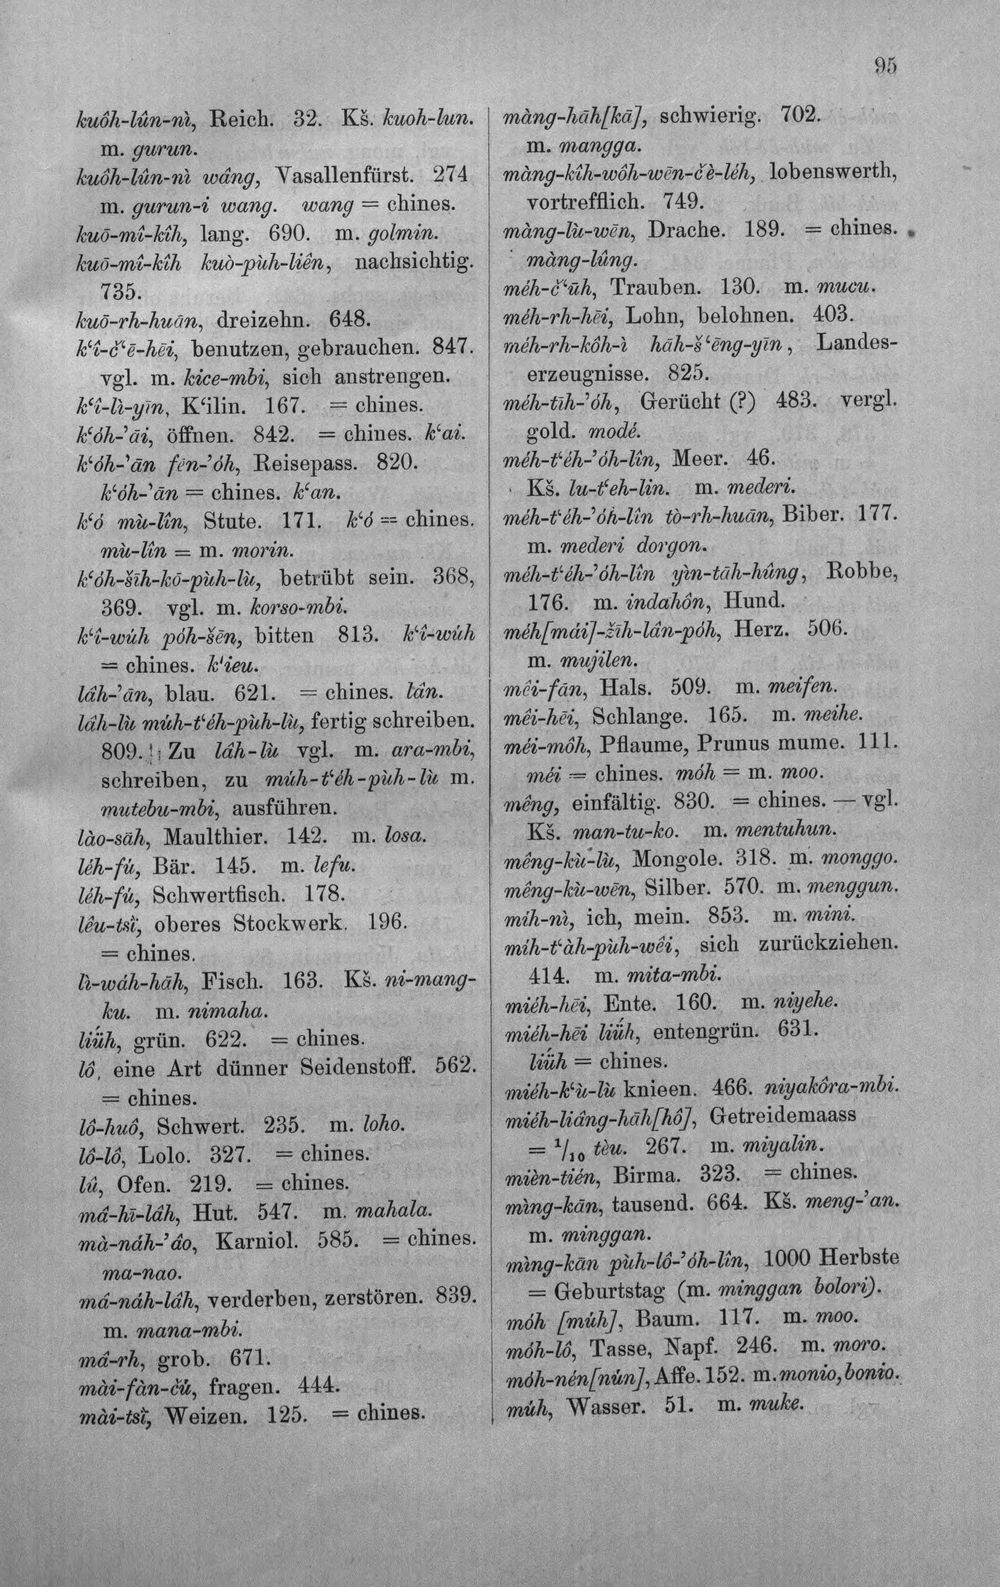 95
kuôh-lûn-nì, Reich. 32. Kš. kuoh-lun.
m. gurun.
kuôh-lûn-nì wâng, Vasallenfürst. 274
m. gurun-i wang. wang = chines.
kuō-mî-kîh, lang. 690. m. golmin.
kuō-mî-kîh kuò-pùh-liên, nachsichtig.
735.
kuō-rh-huān, dreizehn. 648.
k‘î-č‘ē-hēi, benutzen, gebrauchen. 847.
vgl. m. kice-mbi, sich anstrengen.
k‘î-lì-yīn, K‘ilin. 167. = chines.
k‘óh-’āi, öffnen. 842. = chines. k‘ai.
k‘óh-’ān fēn-’óh, Reisepass. 820.
k‘óh-’ān = chines. k‘an.
k‘ó mù-lîn, Stute. 171. k‘ó = chines.
mù-lîn = m. morin.
k‘óh-šīh-kō-pùh-lù, betrübt sein. 368,
369. vgl. m. korso-mbi.
k‘î-wúh póh-šēn, bitten 813. k‘î-wúh
= chines. k‘ieu.
lâh-’ān, blau. 621. = chines. lân.
lâh-lù múh-t‘éh-pùh-lù, fertig schreiben.
809. Zu lâh-lù vgl. m. ara-mbi,
schreiben, zu múh-t‘éh-pùh-lù m.
mutebu-mbi, ausführen.
lào-sāh, Maulthier. 142. m. losa.
léh-fú, Bär. 145. m. lefu.
léh-fú, Schwertfisch. 178.
lêu-tsĭ, oberes Stockwerk. 196.
= chines.
lì-wáh-hāh, Fisch. 163. Kš. ni-mang-
ku. m. nimaha.
liüh, grün. 622. = chines.
lô, eine Art dünner Seidenstoff. 562.
= chines.
lô-huô, Schwert. 235. m. loho.
lô-lô, Lolo. 327. = chines.
lû, Ofen. 219. = chines.
má-hī-lâh, Hut. 547. m. mahala.
mà-náh-’áo, Karniol. 585. = chines.
ma-nao.
má-náh-lâh, verderben, zerstören. 839.
m. mana-mbi.
má-rh, grob. 671.
mài-fàn-čú, fragen. 444.
mài-tsĭ, Weizen. 125. = chines.
màng-hāh[kā], schwierig. 702.
m. mangga.
màng-kîh-wôh-wēn-čè-léh, lobenswerth,
vortrefflich. 749.
màng-lù-wēn, Drache. 189. = chines.
màng-lûng.
méh-č‘ūh, Trauben. 130. m. mucu.
méh-rh-hēi, Lohn, belohnen. 403.
méh-rh-kôh-ì hāh-š‘ēng-yīn, Landes-
erzeugnisse. 825.
méh-tīh-’óh, Gerücht (?) 483. vergl.
gold. modé.
méh-t‘éh-’óh-lîn, Meer. 46.
Kš. lu-t‘eh-lin. m. mederi.
méh-t‘éh-’óh-lîn tò-rh-huān, Biber. 177.
m. mederi dorgon.
méh-t‘éh-’óh-lîn yìn-tāh-hûng, Robbe,
176. m. indahôn, Hund.
méh[mái]-žīh-lân-póh, Herz. 506.
m. mujilen.
mêi-fān, Hals. 509. m. meifen.
mêi-hēi, Schlange. 165. m. meihe.
méi-môh, Pflaume, Prunus mume. 111.
méi = chines. móh = m. moo.
mêng, einfältig. 830. = chines. — vgl.
Kš. man-tu-ko. m. mentuhun.
mêng-kù-lù, Mongole. 318. m. monggo.
mêng-kù-wēn, Silber. 570. m. menggun.
mih-nì, ich, mein. 853. m. mini.
mih-t‘àh-pùh-wêi, sich zurückziehen.
414. m. mita-mbi.
miéh-hēi, Ente. 160. m. niyehe.
miéh-hēi liüh, entengrün. 631.
liüh = chines.
miéh-k‘ù-lù knieen. 466. niyakôra-mbi.
miéh-liâng-hāh[hô], Getreidemaass
= 1/10 tèu. 267. m. miyalin.
mièn-tién, Birma. 323. = chines.
mìng-kān, tausend. 664. Kš. meng-’an.
m. minggan.
mìng-kān pùh-lô-’óh-lîn, 1000 Herbste
= Geburtstag (m. minggan bolori).
móh [múh], Baum. 117. m. moo.
móh-lô, Tasse, Napf. 246. m. moro.
móh-nén[nún], Affe. 152. m. monio, bonio.
múh, Wasser. 51. m. muke.